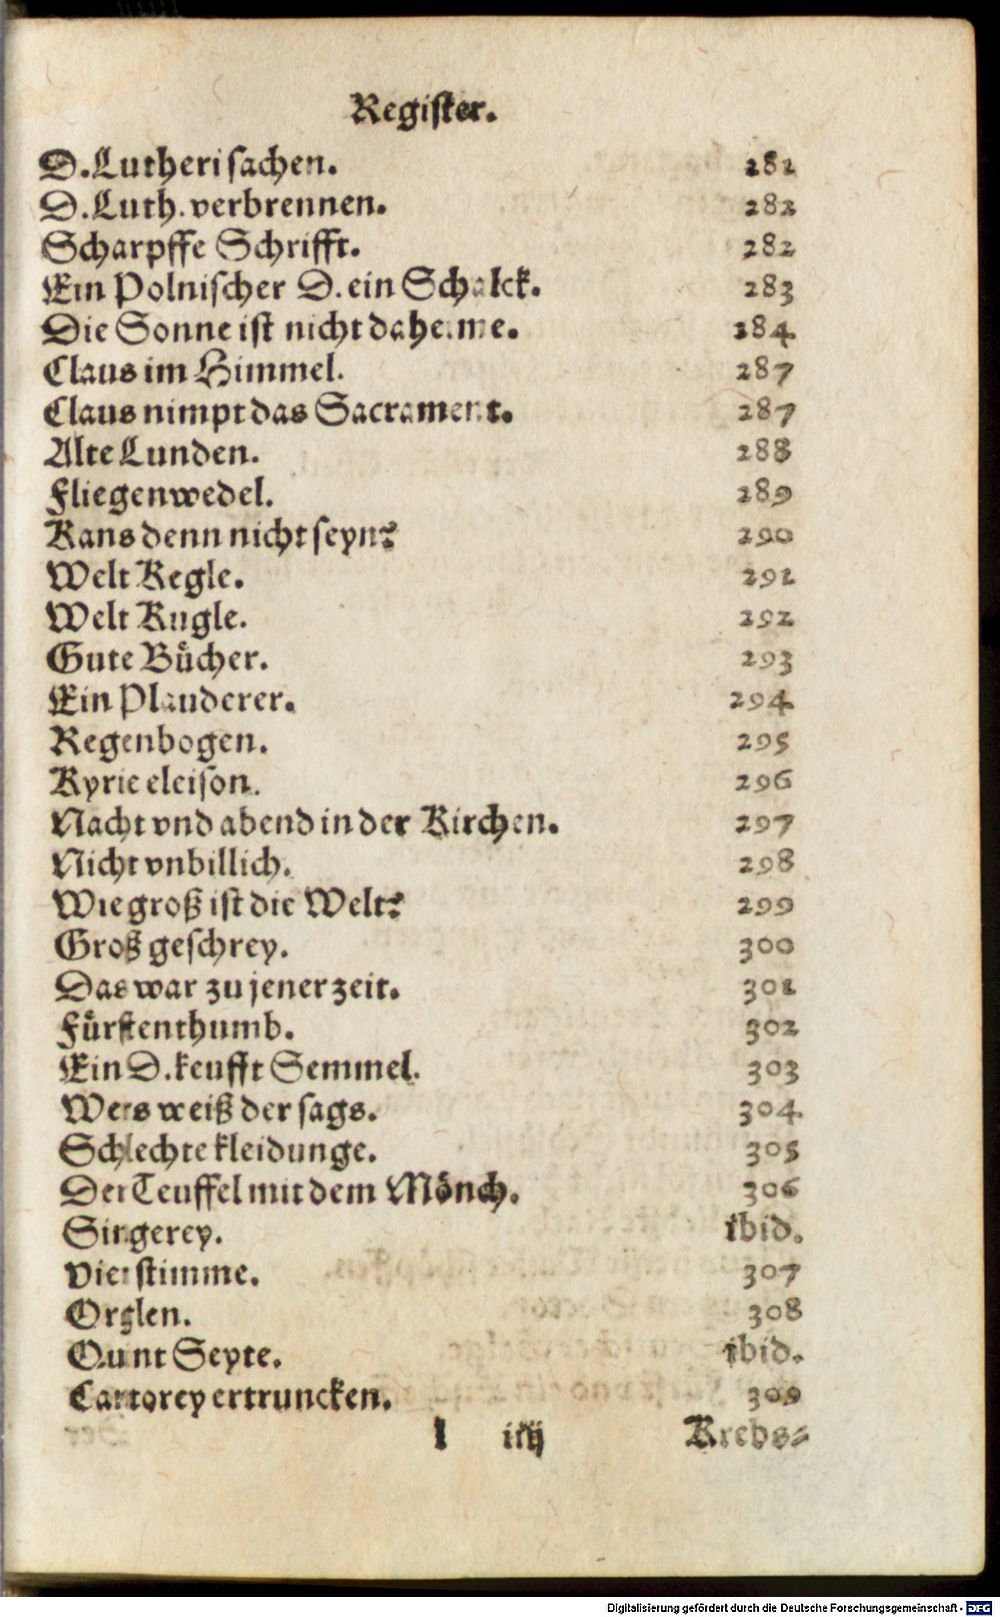 Register.
D. Lutheri sachen. 281
D. Luth. verbrennen. 282
Scharpffe Schrifft. 282
Ein Polnischer D. ein Schalck. 283
Die Sonne ist nicht daheime. 284
Claus im Himmel. 287
Claus nimpt das Sacrament. 287
Alte Lunden. 288
Fliegenwedel. 289
Kans denn nicht seyn? 290
Welt Kegle. 291
Welt Kugle. 292
Gute Bücher. 293
Ein Plauderer. 294
Regenbogen. 295
Kyrie eleison. 296
Nacht vnd abend in der Kirchen. 297
Nicht vnbillich. 298
Wie groß ist die Welt? 299
Groß geschrey. 300
Das war zu jener zeit. 301
Fürstenthumb. 302
Ein D. keufft Semmel. 303
Wers weiß der sags. 304
Schlechte kleidunge. 305
Der Teuffel mit dem Mönch. 306
Singerey. ibid.
Vier stimme. 307
Orglen. 308
Quint Seyte. ibid.
Cantorey ertruncken. 309
l iiij Krebs⸗
Digitalisierung gefördert durch die Deutsche Forschungsgemeinschaft - DFG